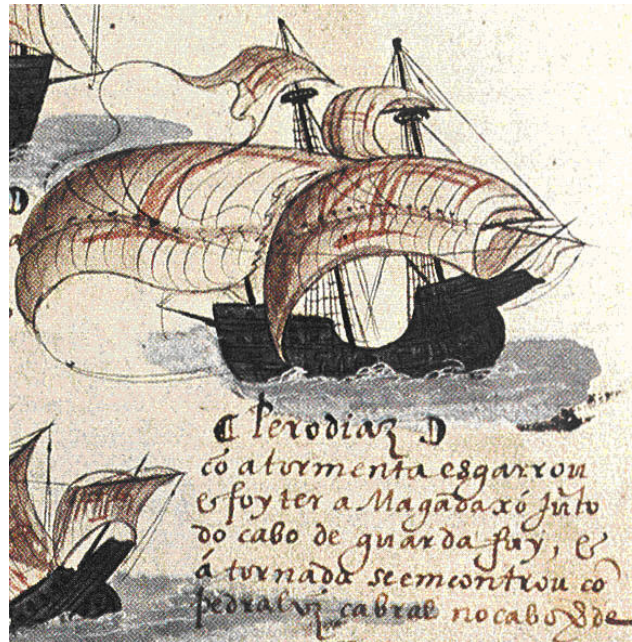 Perodiaz
cõ a tormenta esgarrou
& foy ter a Magadaxó jũto
do cabo de guarda fuy, &
á tornada se emcontrou cõ
pedralvz cabral no cabo de